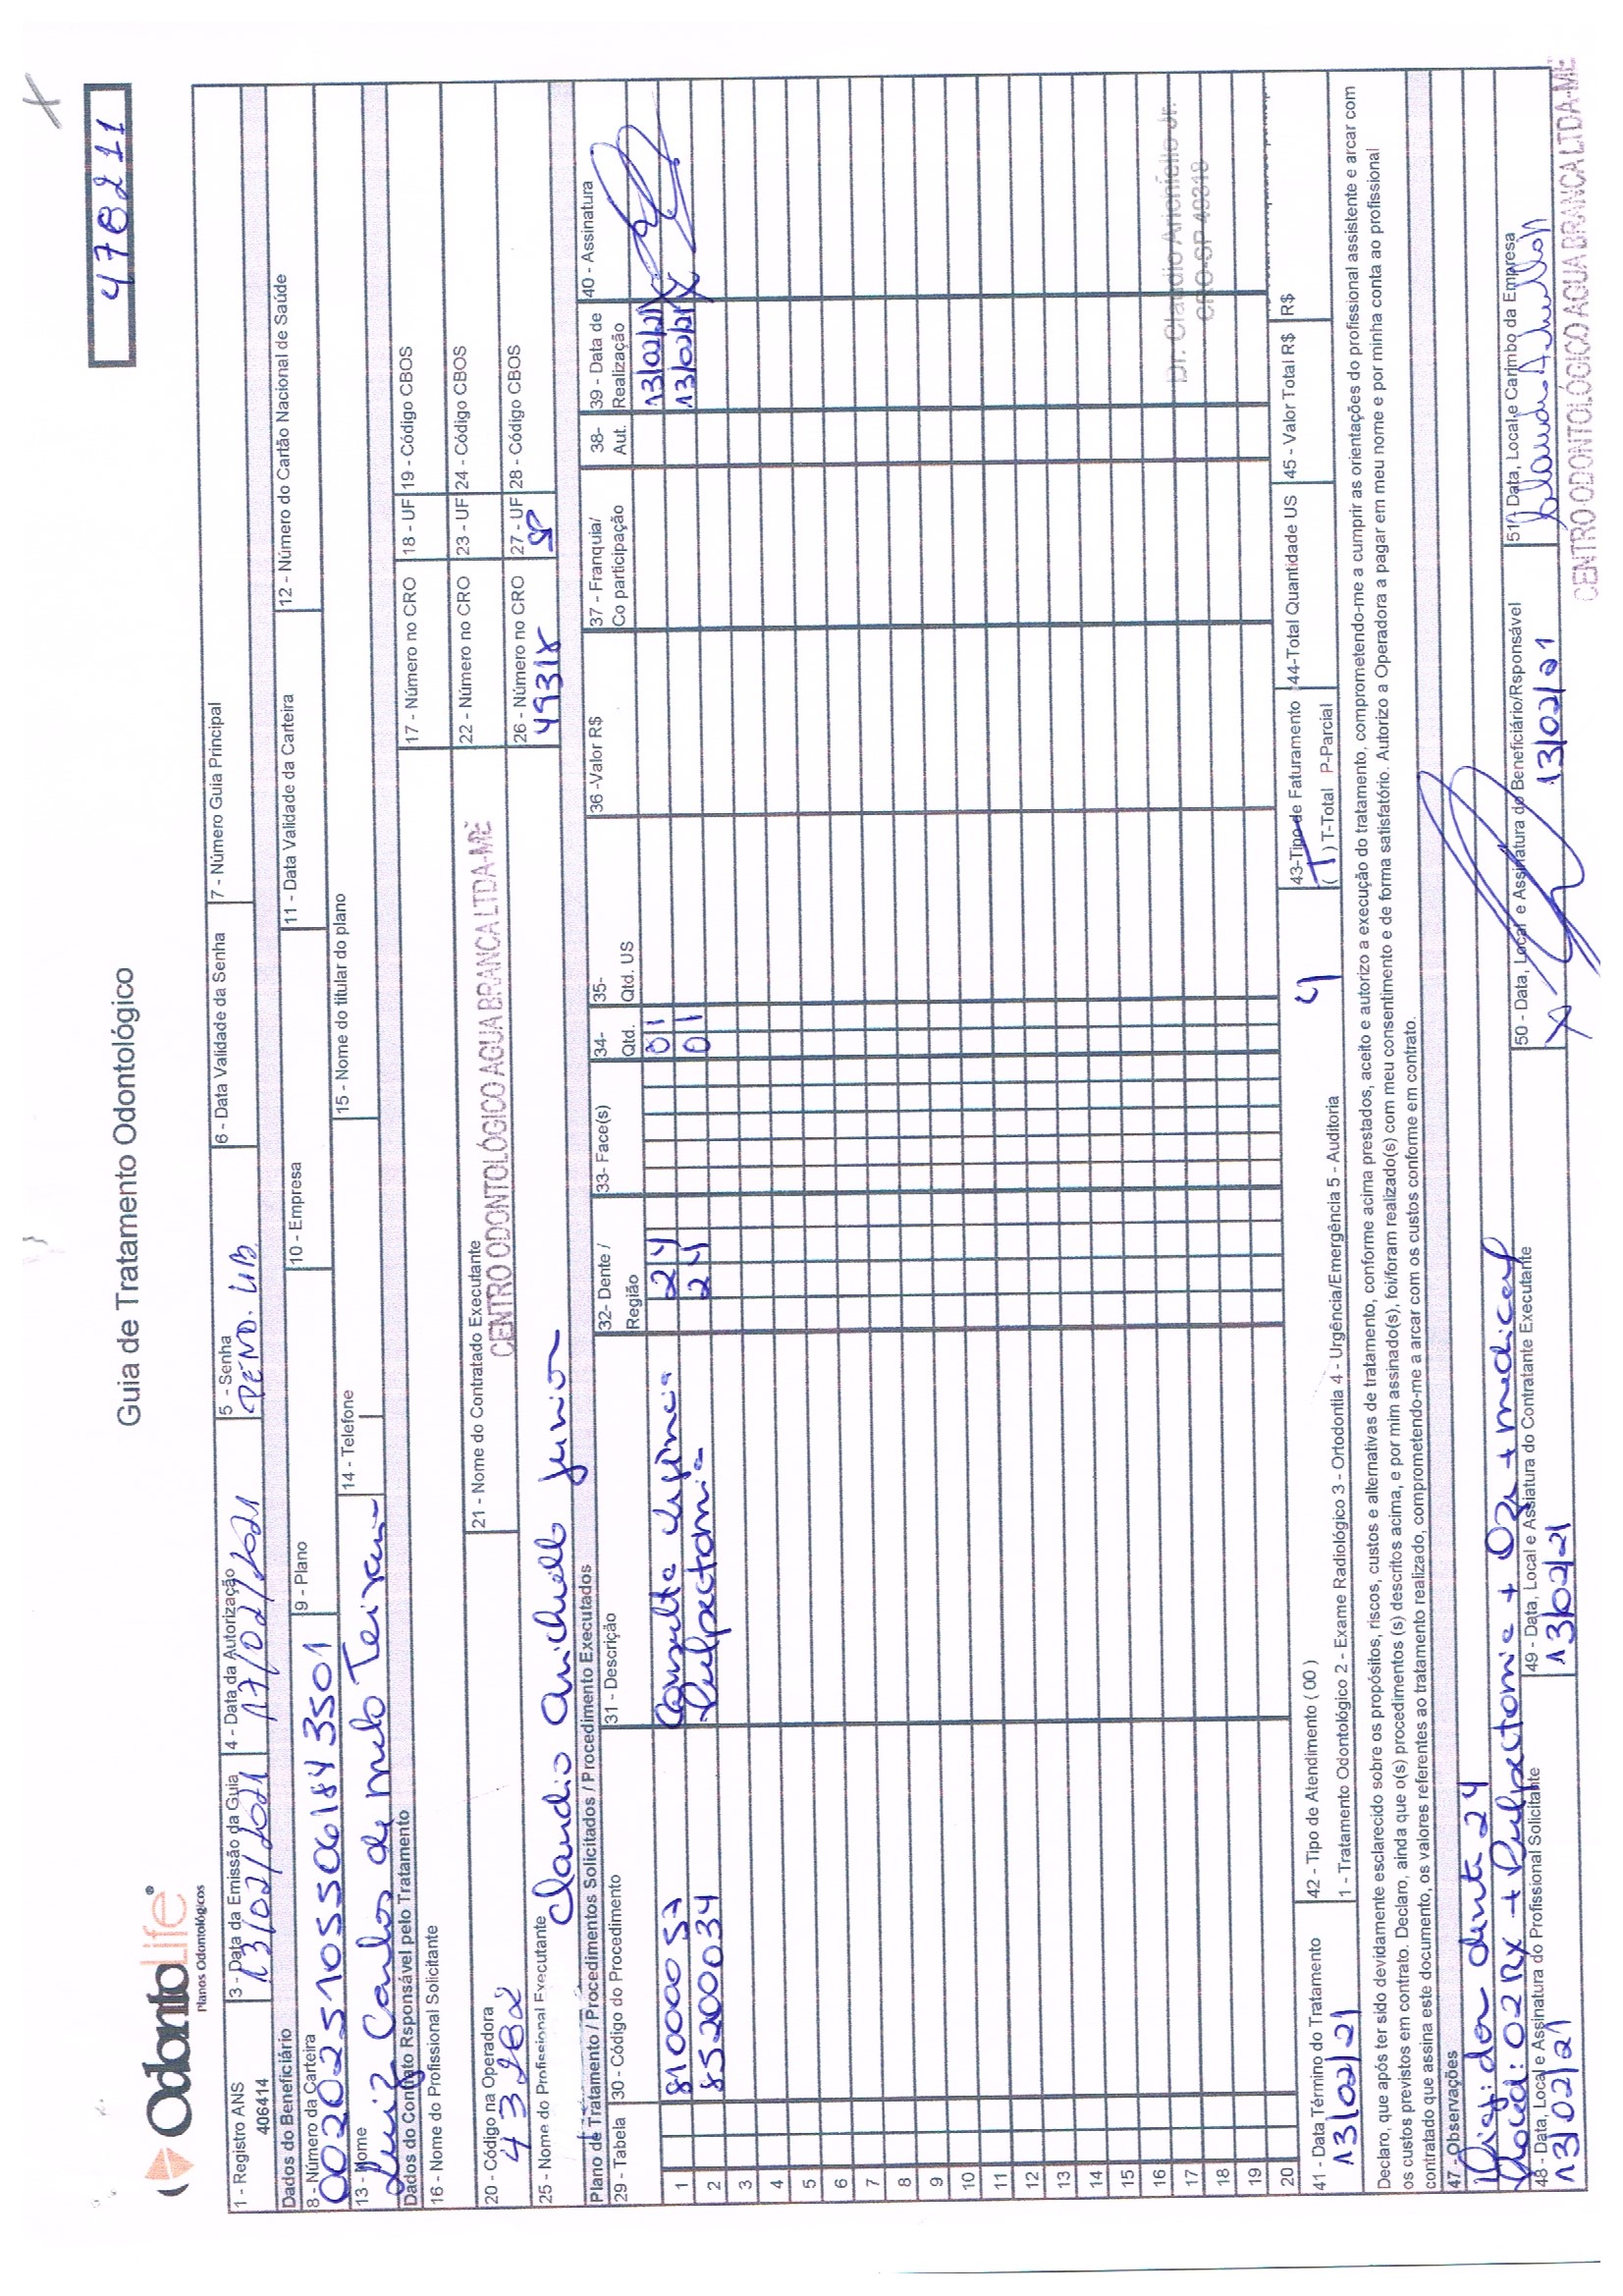 478211
OdontoLife®
Planos Odontológicos
Guia de Tratamento Odontológico
1 - Registro ANS 3 - Data da Emissão da Guia 4 - Data da Autorização 5 - Senha 6 - Data Validade da Senha 7 - Número Guia Principal
406414 13/02/2021 17/02/2021
Dados do Beneficiário
8 - Número da Carteira 9 - Plano 10 - Empresa 11 - Data Validade da Carteira 12 - Número do Cartão Nacional de Saúde
13 - Nome 14 - Telefone 15 - Nome do titular do plano
Luiz Carlos de melo
Dados do Contrato Rsponsável pelo Tratamento
16 - Nome do Profissional Solicitante 17 - Número no CRO 18 - UF 19 - Código CBOS
20 - Código na Operadora 21 - Nome do Contratado Executante 22 - Número no CRO 23 - UF 24 - Código CBOS
CENTRO ODONTOLÓGICO AGUA BRANCA LTDA-ME
25 - Nome do Profissional Executante 26 - Número no CRO 27 - UF 28 - Código CBOS
Claudio Junior 49318 SP
Plano de Tratamento / Procedimentos Solicitados / Procedimento Executados
29 - Tabela 30 - Código do Procedimento 31 - Descrição 32- Dente / Região 33- Face(s) 34- Qtd. 35- Qtd. US 36 -Valor R$ 37 - Franquia/ Co participação 38- Aut. 39 - Data de Realização 40 - Assinatura
1 81000057 Consulta 24 01 13/02/21
2 85200034 Pulpectomia 24 01 13/02/21
3
4
5
6
7
8
9
10
11
12
13
14
15
16
17
18
19
20
CRO-SP 49318
41 - Data Término do Tratamento 42 - Tipo de Atendimento ( 00 ) 43-Tipo de Faturamento 44-Total Quantidade US 45 - Valor Total R$ R$
13/02/21 1 - Tratamento Odontológico 2 - Exame Radiológico 3 - Ortodontia 4 - Urgência/Emergência 5 - Auditoria 4 (T) T-Total P-Parcial
Declaro, que após ter sido devidamente esclarecido sobre os propósitos, riscos, custos e alternativas de tratamento, conforme acima prestados, aceito e autorizo a execução do tratamento, comprometendo-me a cumprir as orientações do profissional assistente e arcar com
os custos previstos em contrato. Declaro, ainda que o(s) procedimentos (s) descritos acima, e por mim assinado(s), foi/foram realizado(s) com meu consentimento e de forma satisfatório. Autorizo a Operadora a pagar em meu nome e por minha conta ao profissional
contratado que assina este documento, os valores referentes ao tratamento realizado, comprometendo-me a arcar com os custos conforme em contrato.
47 - Observações
Diag: dor dente 24
Proced: 02 RX + Pulpectomia +
48 - Data, Local e Assinatura do Profissional Solicitante 49 - Data, Local e Assiatura do Contratante Executante 50 - Data, Local e Assinatura do Beneficiário/Rsponsável 51 - Data, Local e Carimbo da Empresa
13/02/21 13/02/21 13/02/21
CENTRO ODONTOLÓGICO AGUA BRANCA LTDA-ME